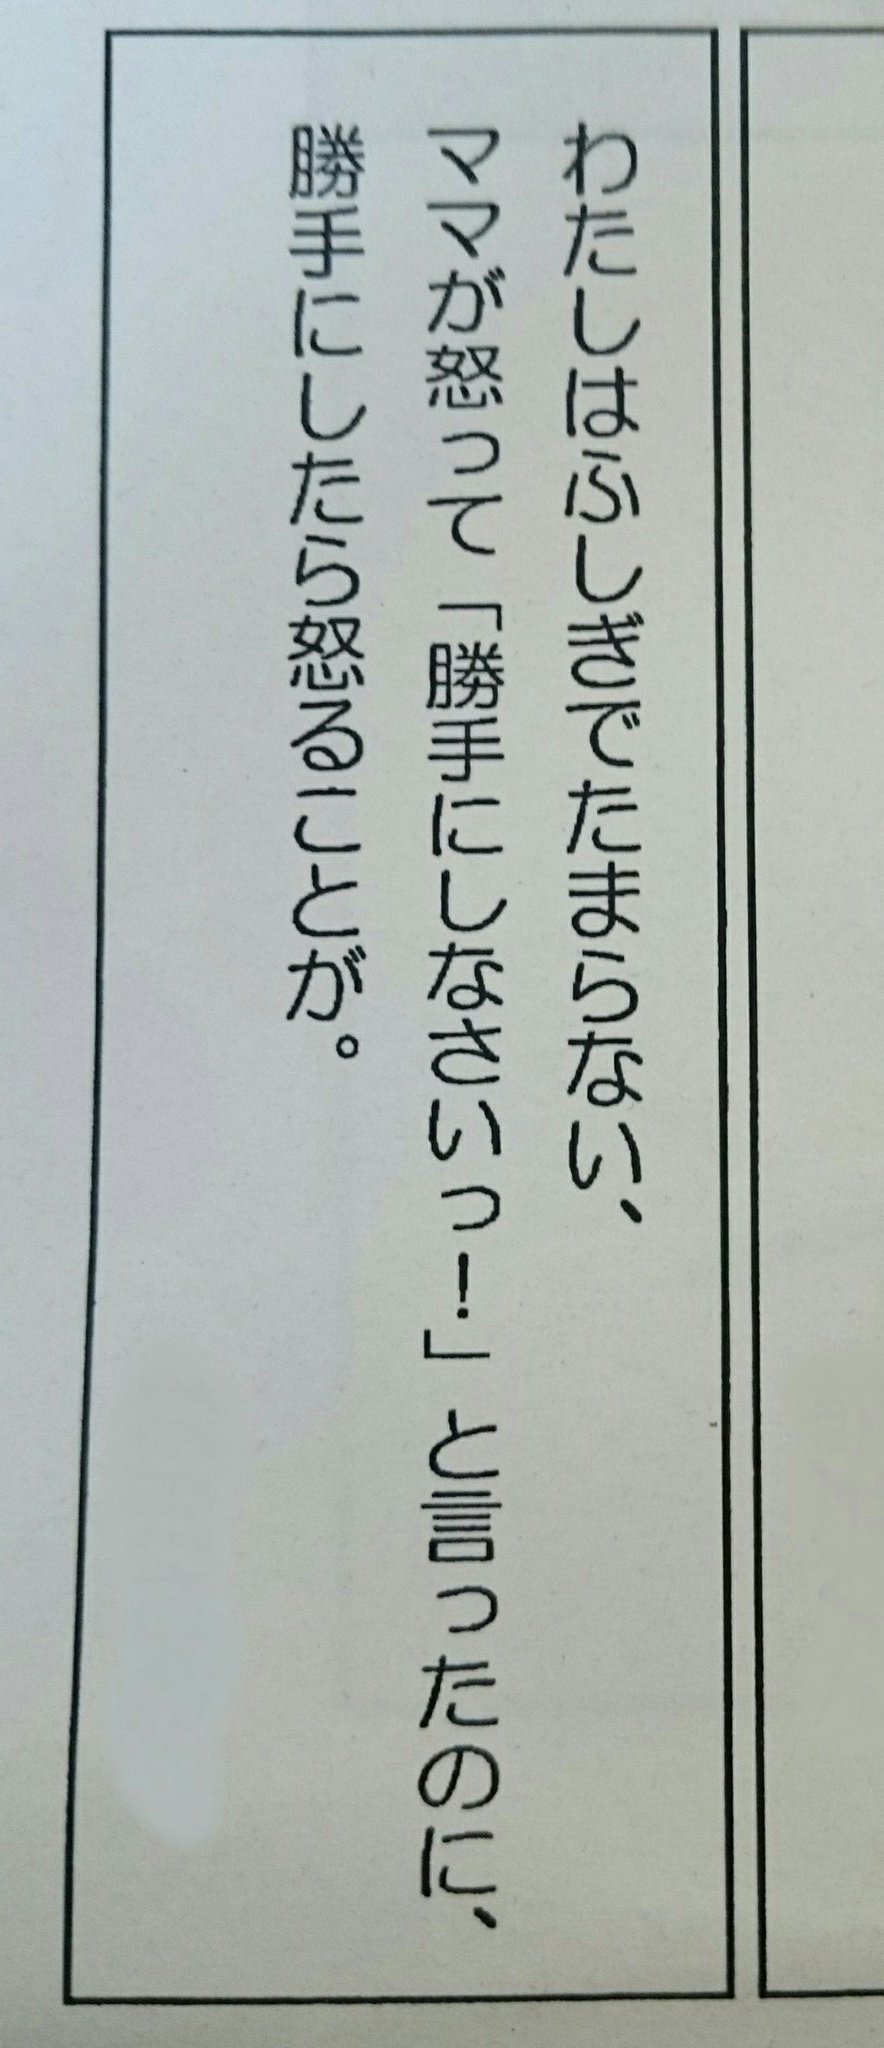 わたしはふしぎでたまらない、
ママが怒って「勝手にしなさいっ！」と言ったのに、
勝手にしたら怒ることが。